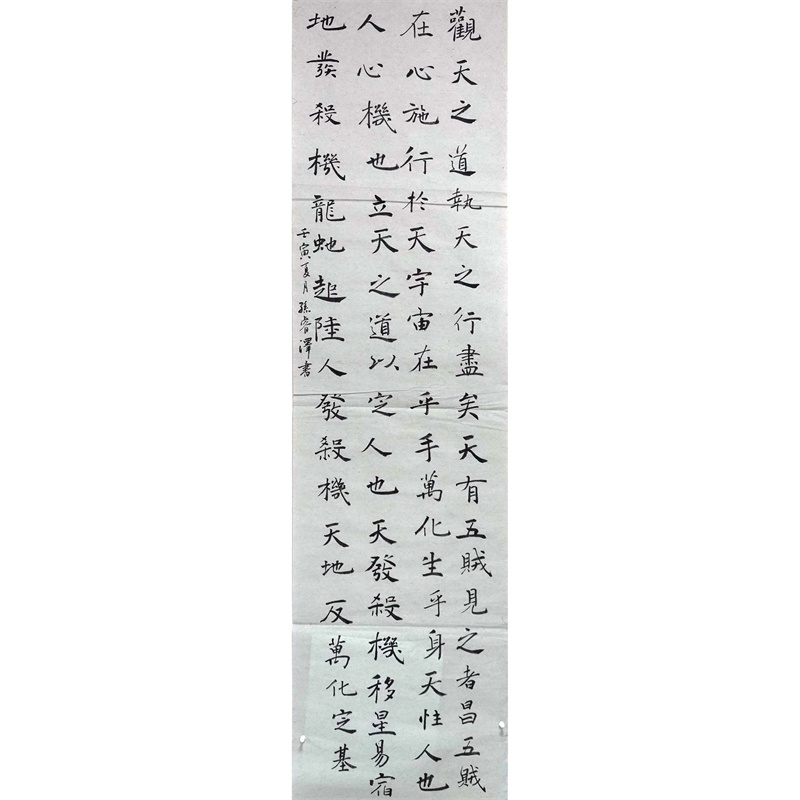 觀天之道執天之行盡矣天有五賊見之者昌五賊
在心施行於天宇宙在乎手萬化生乎身天性人也
人心機也立天之道以定人也天發殺機移星易宿
地發殺機龍虵起陸人發殺機天地反萬化定基
壬寅夏月孫睿澤書